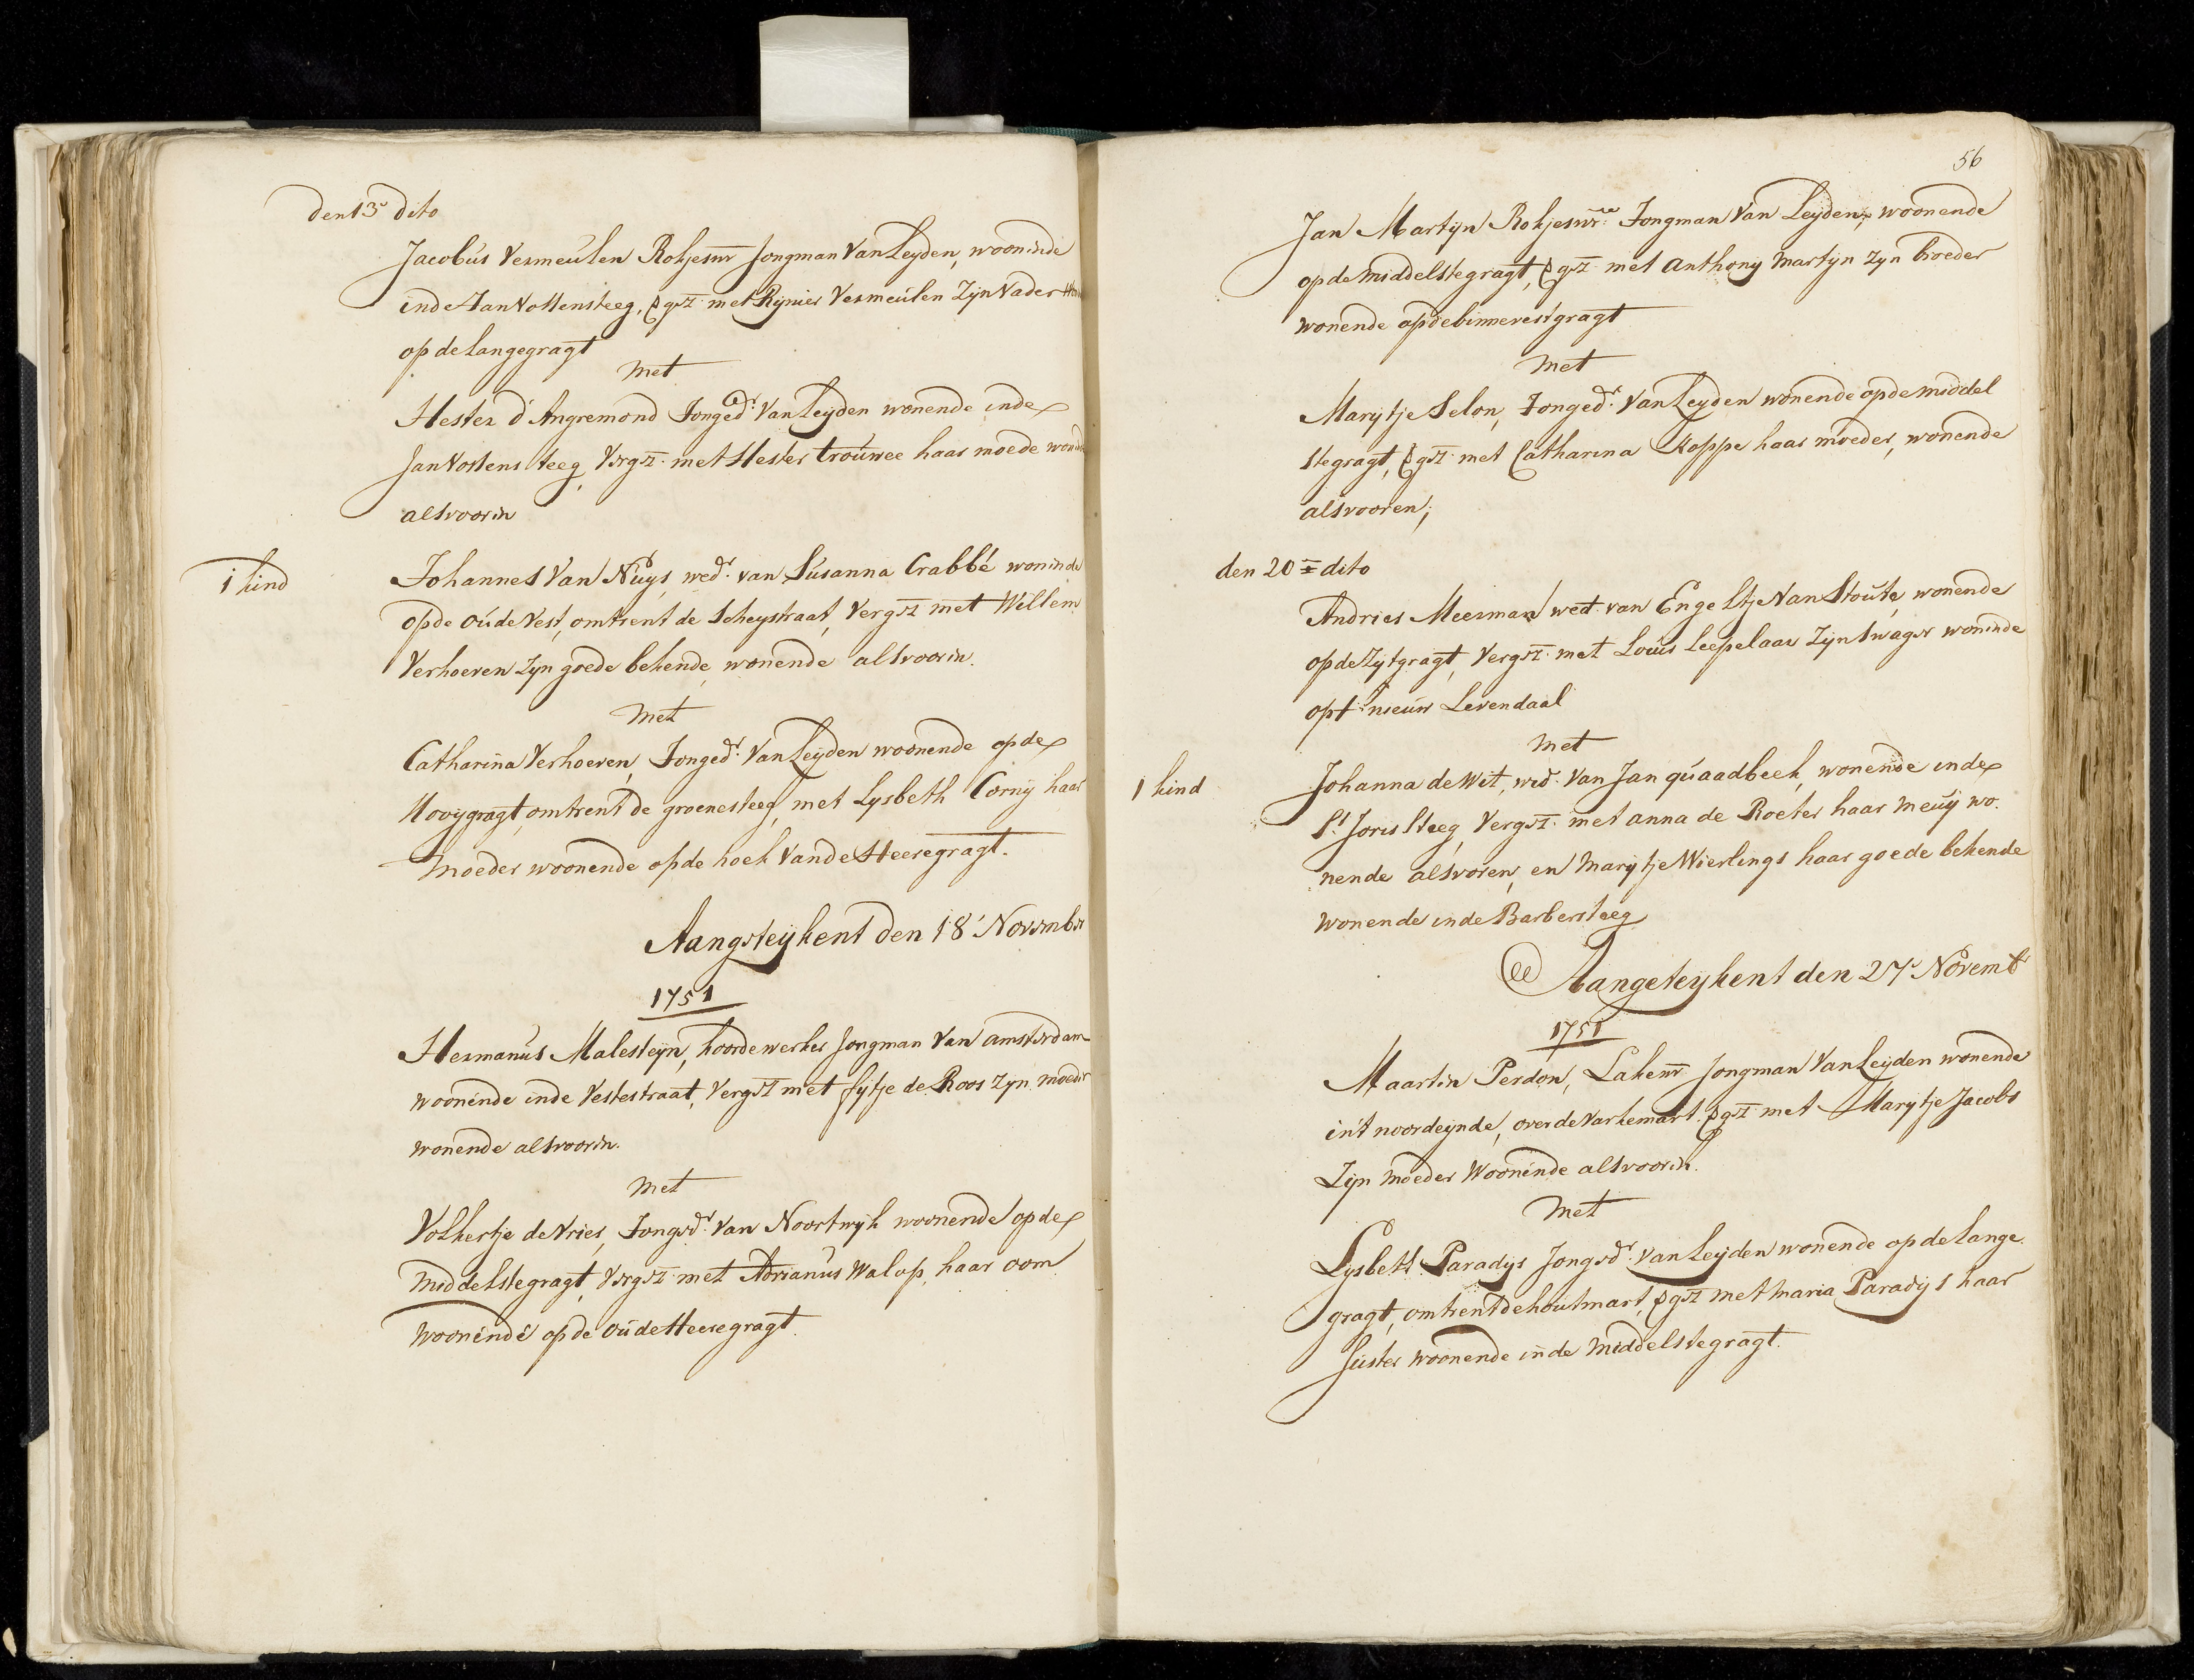 den 13 dito
Jacobus Vermeulen Rokjeswr Jongman Van Leyden, wooninde
in de Jan Vossensteeg, vergez: met Rynier Vermeulen Zyn Vader
op de Langegragt
met
Hester d'Angremond Jongedr: Van Leyden wonende in de
Jan Vossensteeg vergez: met Hester trouwee haar moede
alsvooren
1 kind
Johannes Van Nuys, wedr: van Susanna Crabbé woninde
op de oude Vest, omtrent de Scheystraat, Vergez met Willem
Verhoeven Zyn goede bekende, wonende alsvooren.
met
Catharina Verhoeven, Jongedr: Van Leyden woonende op de
Hooygragt, omtrent de groenesteeg, met Lysbeth Corny haar
moeder woonende op de hoek Van de Heeregragt.
Aangeteykent den 18 November
1751
Hermanus Malesteyn, koordewerker Jongman Van Amsterdam
woonende in de Vestestraat, Vergez met fytje de Roos zyn moeder
wonende alsvooren.
met
Volkertje de Vries, Jongedr: Van Noortwyk woonende op de
middelstegragt, vergez: met Adrianus Walop, haar oom
woonende op de oude Heeregragt.
56
Jan Martyn Rokjeswr: Jongman Van Leyden, woonende
op de middelstegragt, vergez: met Anthony Martyn Zyn broeder
wonende op de binnevestgragt
met
Marytje Selon, Jongedr: Van Leyden wonende op de middel
stegragt, vergez: met Catharina Koppe haar moeder, wonende
alsvooren;
den 20 dito
Andries Meerman wedr: van Engeltje Van Stoute, wonende
op de Zytgragt, Vergez: met Louis Leepelaar Zyn Swager woninde
op 't nieuw Levendaal
met
1 kind
Johanna de Wit, wed: Van Jan quaadbeek, wonende in de
St Joris steeg, Vergez: met anna de Roeter haar meuy wo
nende alsvoren, en Marytje Wierlings haar goede bekende
wonende in de Barbersteeg
Aangeteykent den 27 Novemb
1751
Maartin Perdon, Lakenwr Jongman Van Leyden wonende
in 't noordeynde, over de varkemart. vergez: met Marytje Jacobs
Zyn moeder Woonende alsvooren.
met
Lysbett Paradys Jongedr: van Leyden wonende op de lange
gragt, omtrent de houtmart, vergez met maria Paradys haar
suster woonende in de middelstegragt.